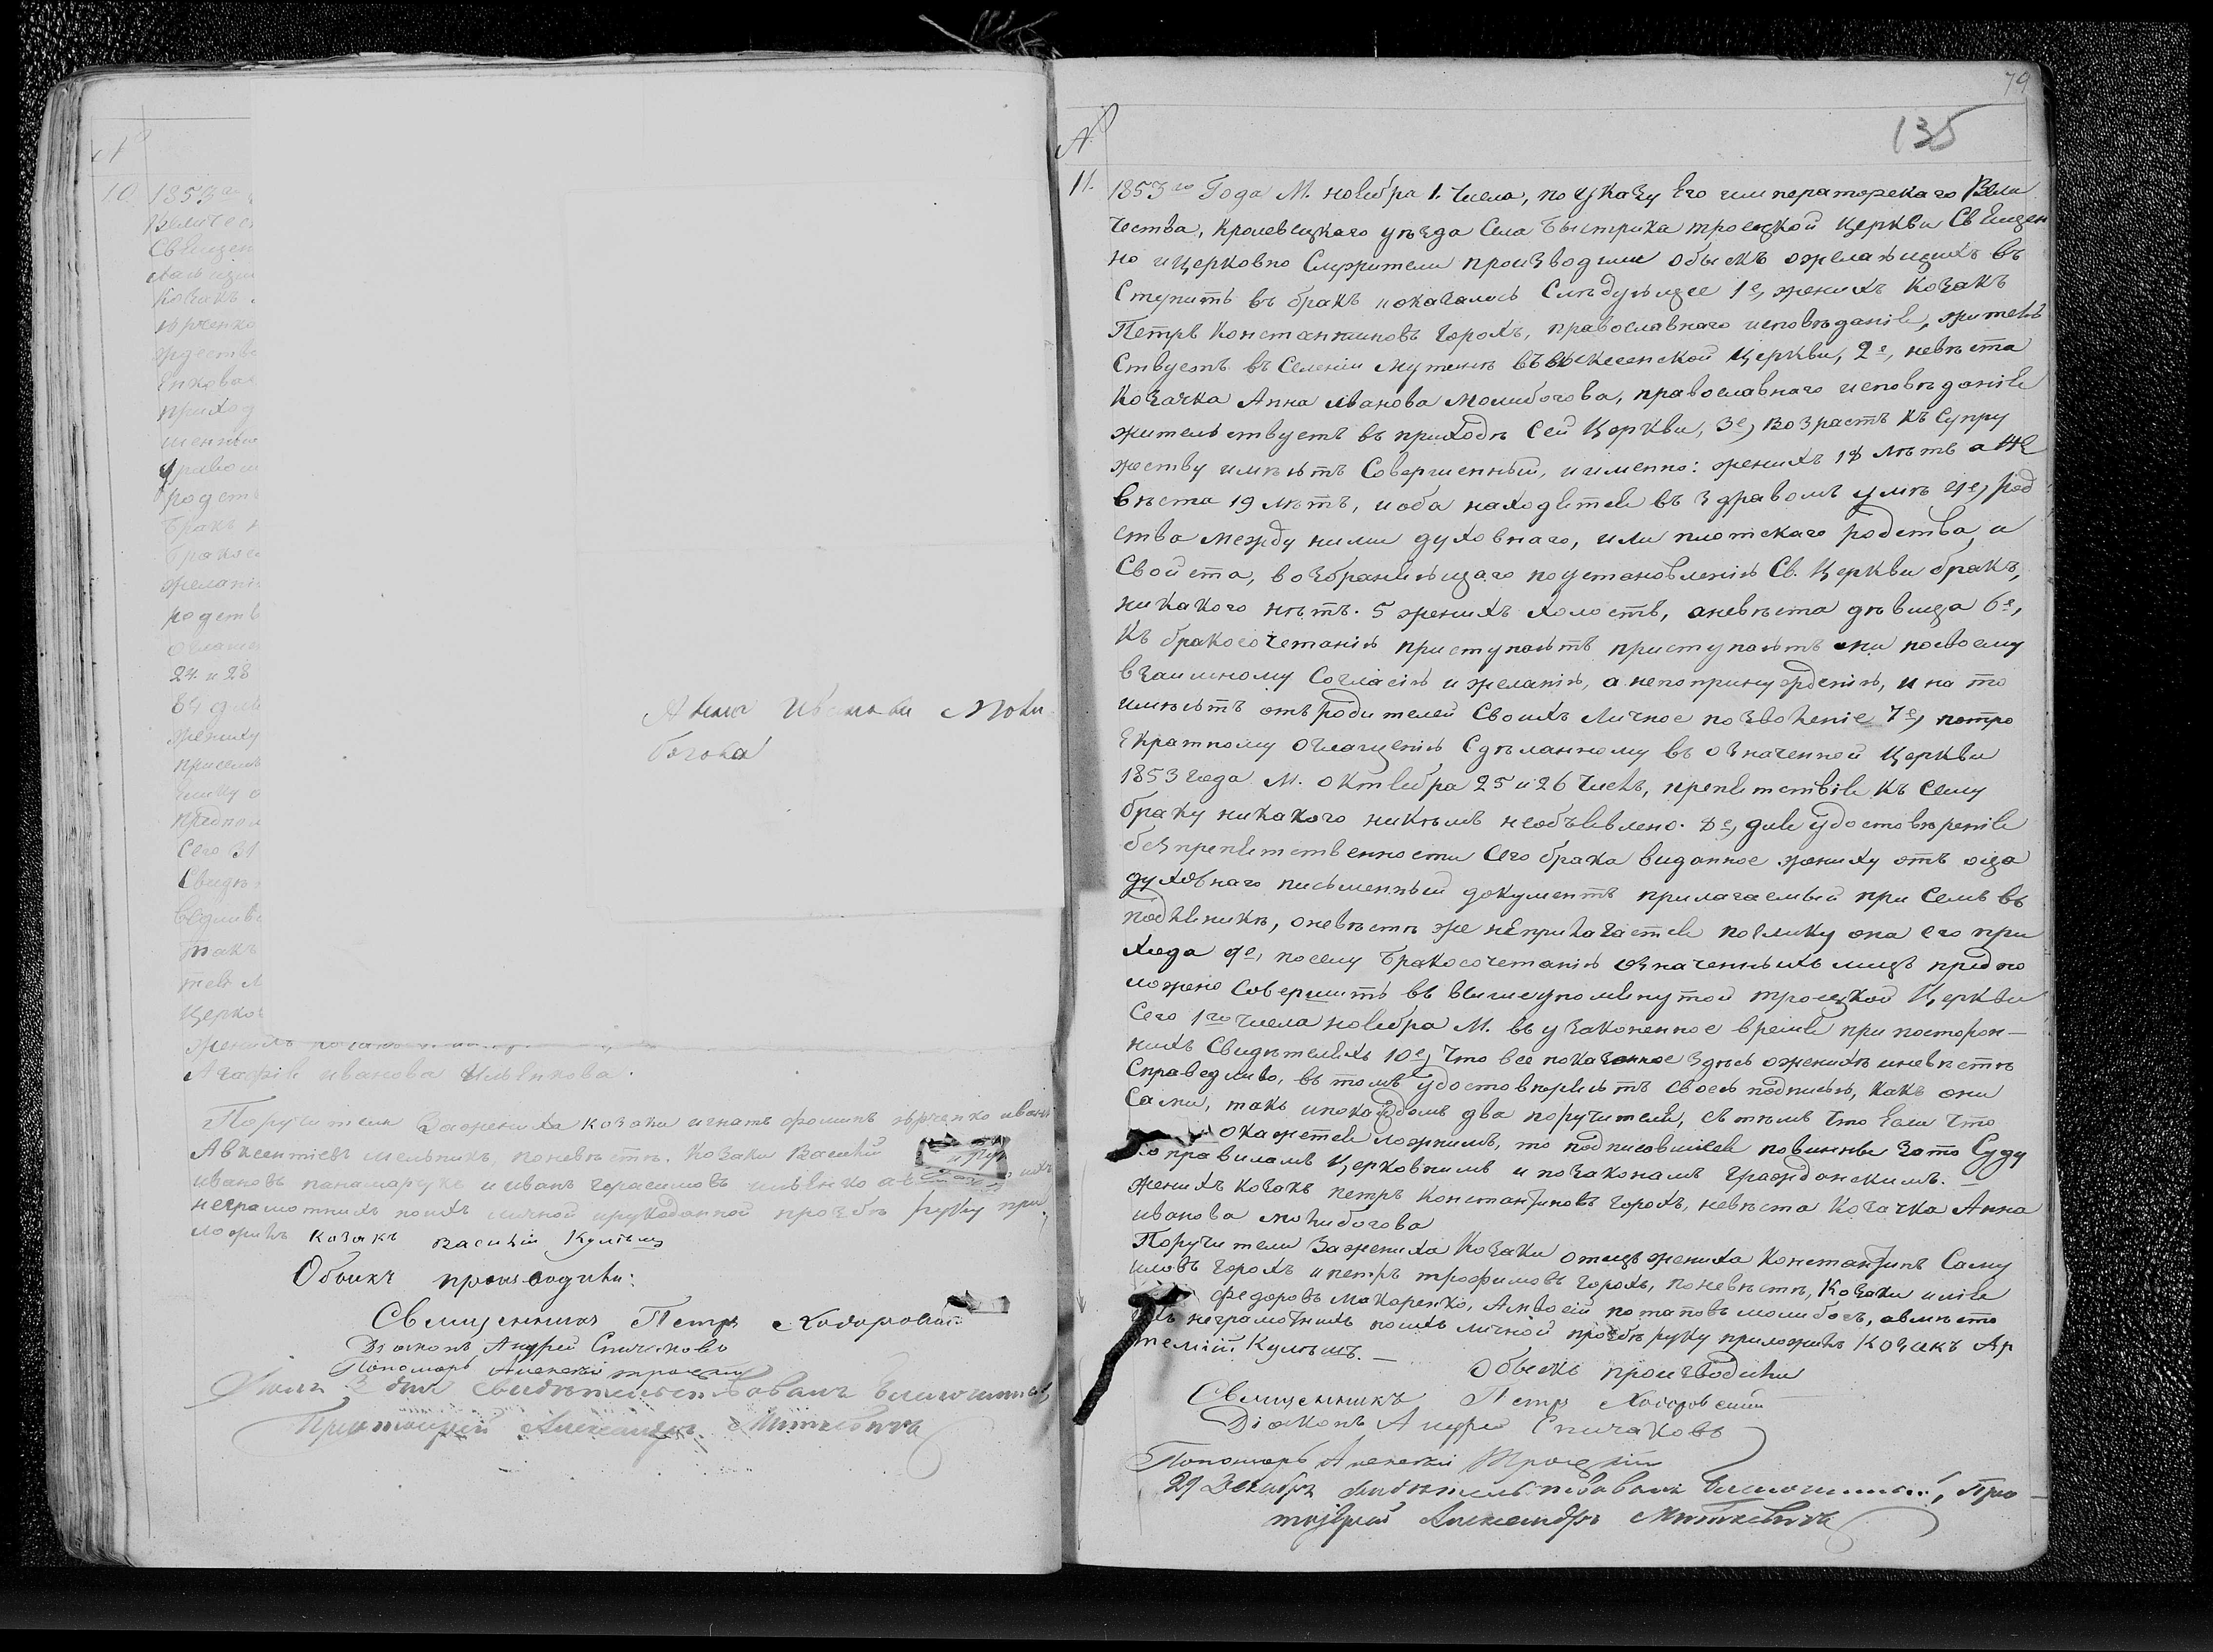 №
10. 1853 го
Величес
Священ
лали изы
Козакъ
ърченко
ждество
Енкова
приход
шенны
здравом
родств
бракъ н
бракос
желані
родств
оглаш
24. и 28
8е для
жениху
прилаг
нику о
предпол
Сего 31
Свидѣ
ведливо
такъ
тел
Церко
женихъ
Агафія иванова
Поручители Зажениха козаки игнатъ фоминъ иванъ
Авксентіевъ мельникъ, поневѣстѣ. Козаки Василій
ивановъ и иванъ герасимовъ
неграмотнихъ поихъ личной ирукоданной прозбѣ руку при
ложилъ козакъ Василій Кулѣшъ
Обыскъ производили:
Священникъ Петръ Ходоровскій
Діаконъ Андрей Спичаковъ
Пономарь Алексій Троецкій
дня свидѣтельствовалъ благочинный
Протоіерей Александръ Миткевичъ
Анна Иванова Моли
богова
79
135
№
11. 1853 го Года М. ноября 1. числа, по Указу Его императорскаго Вели
чества, Кролевецкаго уѣзда Села быстрика троецкой церкви Священ
но ицерковно Служители производили обыскъ ожелающихъ в
Ступить въ бракъ иоказалось Слѣдующее 1е, женихъ Козакъ
Петръ Константиновъ Горохъ, православнаго исповѣданія, житель
Ствуетъ въ Селеніи Мутинѣ въ вознесенской Церкви, 2е, невѣста
Козачка Анна иванова молибогова, православнаго исповѣданія
жительствуетъ въ приходѣ Сей Церкви, 3е, Возрастъ къ Супру
жеству имѣютъ Совершенный, иименно: женихъ 18 лѣтъ а не
вѣста 19 лѣтъ, иоба находятся въ здравомъ умѣ 4е, род
ства между ними духовнаго, или плотскаго родства, и
Свойста, возбраняющаго поустановленію Св. Церкви бракъ,
никакого нѣтъ. 5 женихъ холостъ, аневѣста дѣвица 6е,
Къ бракосочетанію приступаютъ приступаютъ они посвоему
взаимному Согласію и желанію, а непопринужденію, и на то
имѣютъ отъ родителей Своихъ личное позволеніе 7е, потро
Екратному оглашенію Сдѣланному въ означенной Церкви
1853 года М. Октября 25 и 26 числъ, препятствія къ Сему
браку никакого никѣмъ необъявлено. 8е, для удостовѣренія
безпрепятственности Сего брака виданное жениху отъ оца
духовнаго писменный документъ прилагаемый при Семъ въ
подлиникѣ, оневѣстѣ же неприлагается поелику она его при
хода 9е, посему бракосочетаніе означенныхъ лицъ предпо
ложено Совершить въ вышеупомянутой троецкой Церкви
Сего 1го числа ноября М. въ узаконенное время при посторон—
нихъ Свидѣтеляхъ 10е, Что все показанное здѣсь оженихѣ иневѣстѣ
Справедливо, въ томъ удостовѣряютъ своею подписью, какъ они
Сами, такъ ипокаждомъ два поручителя, съ тѣмъ что Если что
окажется ложнимъ, то подписавшіеся повинны зато Суду
по правиламъ Церковнимъ и позаконамъ гражданскимъ.—
женихъ козакъ петръ Константиновъ горохъ, невѣста Козачка Анна
иванова молибогова
Поручители Зажениха Козаки отецъ жениха Константинъ Саму
иловъ горохъ ипетръ трофимовъ горохъ, поневѣстѣ, Козаки илія
федоровъ Макаренко, Алексій потаповъ молибогъ, авмѣсто
ихъ неграмотнихъ поихъ личной прозбѣ руку приложилъ Козакъ Ар
темій Кулѣшъ.—
Обыскъ производили
Священникъ Петръ Ходоровскій
Діаконъ Андрей Спичаковъ
Пономарь Алексій Троецкій
29 Декабря свидѣтельствовалъ благочинный, Про—
тоіерей Александръ Миткевичъ